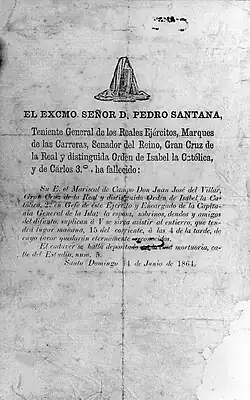 EL EXCMO. SEÑOR D. PEDRO SANTANA,
Teniente General de los Reales Ejércitos, Marques
de las Carreras, Senador del Reino, Gran Cruz de
la Real y distinguida Orden de Isabel la Católica,
y de Cárlos 3.º, ha fallecido:
Su E. el Mariscal de Campo Don Juan José del Villar,
Gran Cruz de la Real y distinguida Orden de Isabel la Ca-
tólica, 2.º en Gefe de este Ejército y Encargado de la Capita-
nía General de la Isla; la esposa, sobrinos, deudos y amigos
del difunto, suplican á V se sirva asistir al entierro, que ten-
drá lugar mañana, 15 del corriente, á las 4 de la tarde, de
cuyo favor quedarán eternamente reconocidos.
El cadaver se halla depositado mortuoria, ca-
lle del Estudio, num. 5.
Santo Domingo 14 de Junio de 1864.